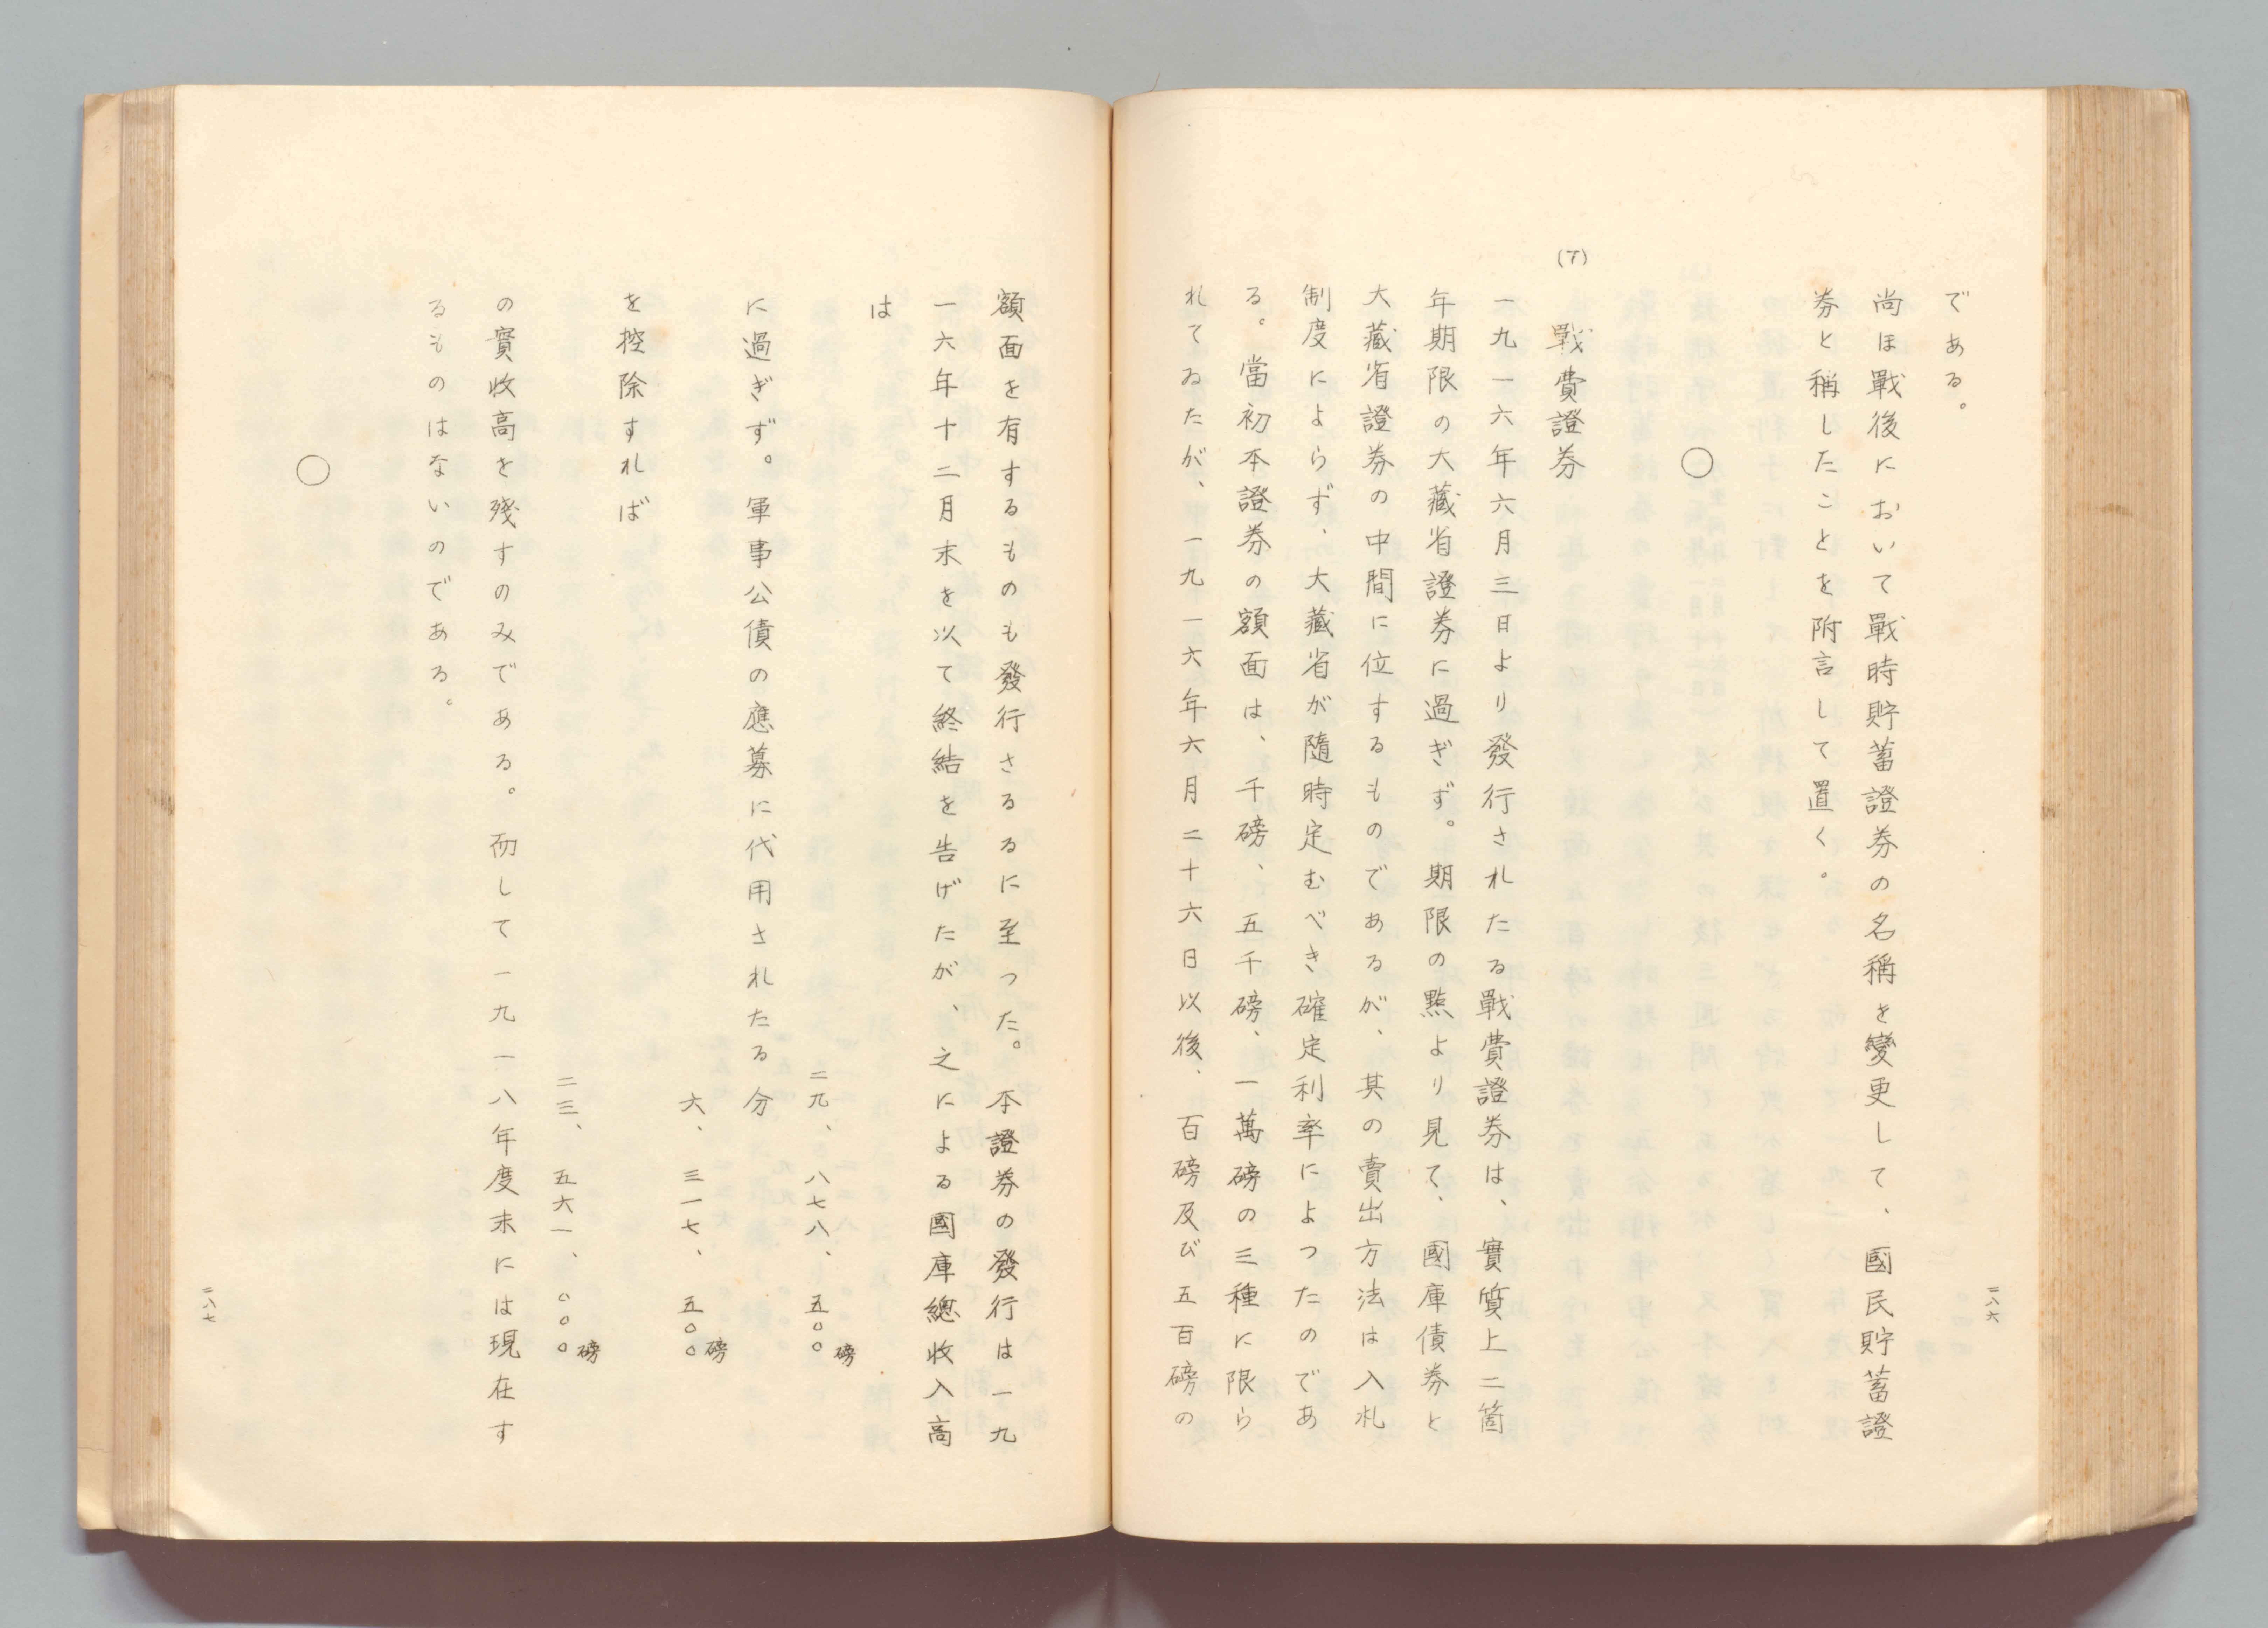 である。
尚ほ戰後において戰時貯蓄證券の名稱を變更して、國民貯蓄證
券と稱したことを附言して置く。
○
(7)
戰費證券
一九一六年六月三日より發行されたる戰費證券は、實質上二箇
年期限の大藏省證券に過ぎず。期限の點より見て、國庫債券と
大藏省證券の中間に位するものであるが、其の賣出方法は入札
制度によらず、大藏省が隨時定むべき確定利率によつたのであ
る。當初本證券の額面は、千磅、五千磅、一萬磅の三種に限ら
れてゐたが、一九一六年六月二十六日以後、百磅及び五百磅の
二八六
額面を有するものも發行さるるに至つた。本證券の發行は一九
一六年十二月末を以て終結を告げたが、之による國庫總收入高
は
二九、八七八、五〇〇磅
に過ぎず。軍事公債の應募に代用されたる分
六、三一七、五〇〇磅
を控除すれば
二三、五六一、〇〇〇磅
の實收高を殘すのみである。而して一九一八年度末には現在す
るものはないのである。
○
二八七